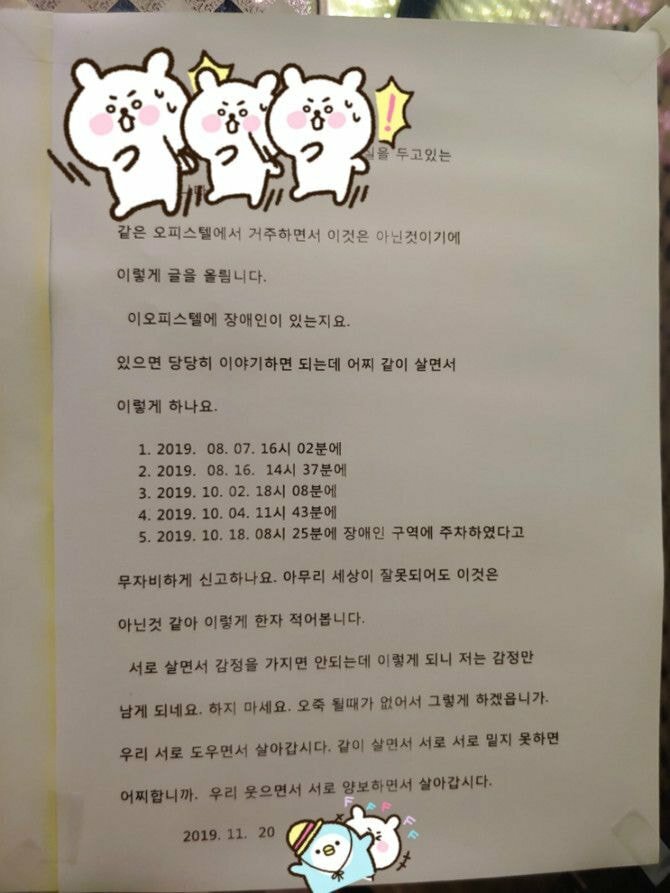 실을 두고있는
같은 오피스텔에서 거주하면서 이것은 아닌것이기에
이렇게 글을 올림니다.
이오피스텔에 장애인이 있는지요.
있으면 당당히 이야기하면 되는데 어찌 같이 살면서
이렇게 하나요.
1. 2019. 08. 07. 16시 02분에
2. 2019. 08. 16. 14시 37분에
3. 2019. 10. 02. 18시 08분에
4. 2019. 10. 04. 11시 43분에
5. 2019. 10. 18. 08시 25분에 장애인 구역에 주차하였다고
무자비하게 신고하나요. 아무리 세상이 잘못되어도 이것은
아닌것 같아 이렇게 한자 적어봅니다.
서로 살면서 감정을 가지면 안되는데 이렇게 되니 저는 감정만
남게 되네요. 하지 마세요. 오죽 될때가 없어서 그렇게 하겠읍니가.
우리 서로 도우면서 살아갑시다. 같이 살면서 서로 서로 믿지 못하면
어찌합니까. 우리 웃으면서 서로 양보하면서 살아갑시다.
2019. 11. 20